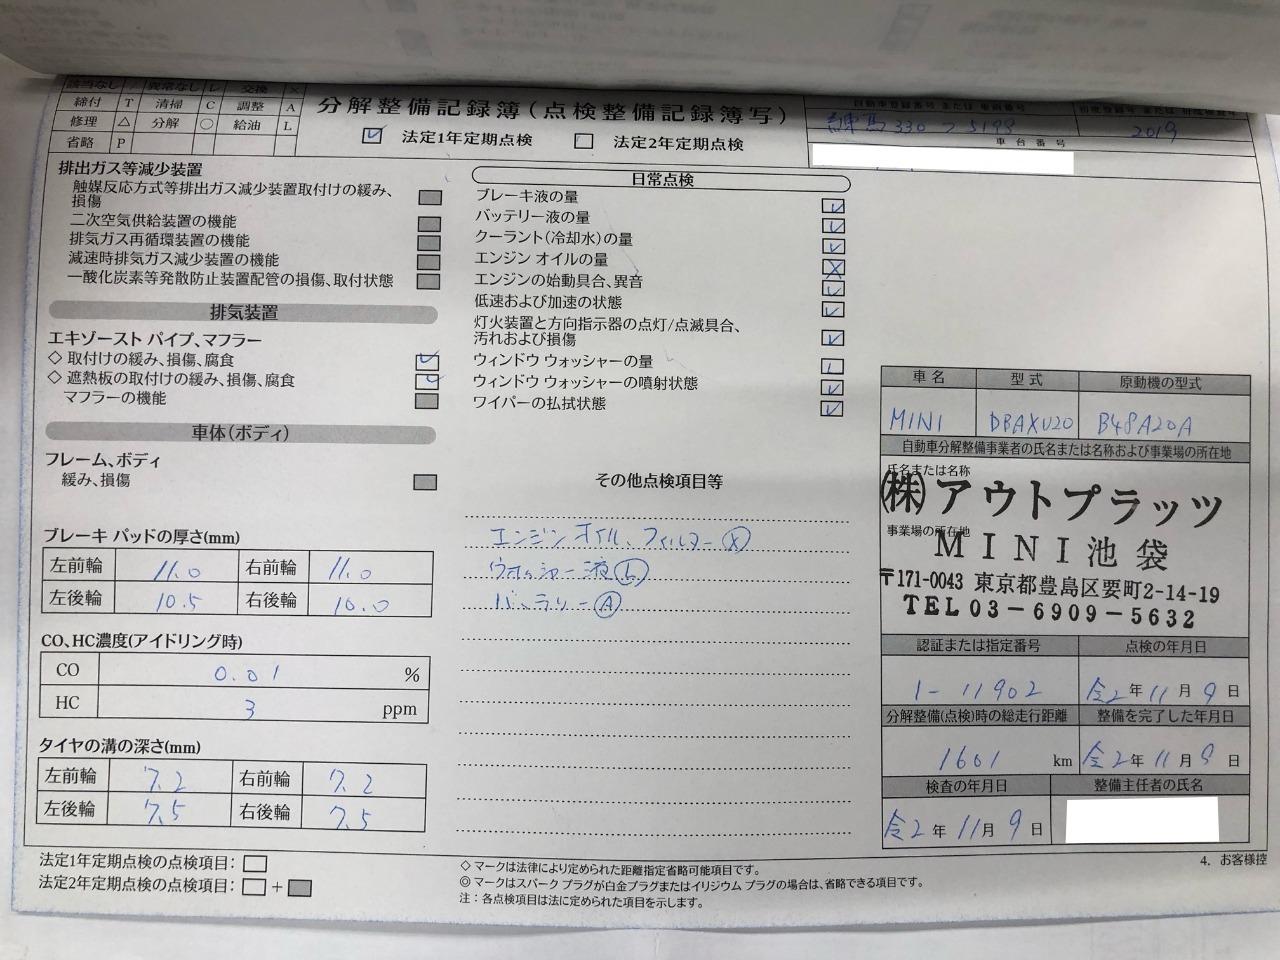 該当なし / 異常なし レ 交換 ×
締付 T 清掃 C 調整 A
修理 △ 分解 ○ 給油 L
省略 P
分解整備記録簿(点検整備記録簿写)
法定1年定期点検 法定2年定期点検
自動車登録番号 または 車両番号
練馬 330 つ 5198
2019
車台番号
排出ガス等減少装置
触媒反応方式等排出ガス減少装置取付けの緩み、
損傷
二次空気供給装置の機能
排気ガス再循環装置の機能
減速時排気ガス減少装置の機能
一酸化炭素等発散防止装置配管の損傷、取付状態
排気装置
エキゾースト パイプ、マフラー
◇ 取付けの緩み、損傷、腐食 レ
◇ 遮熱板の取付けの緩み、損傷、腐食 レ
マフラーの機能
車体(ボディ)
フレーム、ボディ
緩み、損傷
ブレーキ パッドの厚さ(mm)
左前輪 11.0 右前輪 11.0
左後輪 10.5 右後輪 10.0
CO、HC濃度(アイドリング時)
CO 0.01 %
HC 3 ppm
タイヤの溝の深さ(mm)
左前輪 7.2 右前輪 7.2
左後輪 7.5 右後輪 7.5
法定1年定期点検の点検項目:
法定2年定期点検の点検項目: +
日常点検
ブレーキ液の量 レ
バッテリー液の量 レ
クーラント(冷却水)の量 レ
エンジン オイルの量 X
エンジンの始動具合、異音 レ
低速および加速の状態 レ
灯火装置と方向指示器の点灯/点滅具合、
汚れおよび損傷 レ
ウィンドウ ウォッシャーの量 L
ウィンドウ ウォッシャーの噴射状態 レ
ワイパーの払拭状態 レ
その他点検項目等
エンジンオイル、フィルター Ⓧ
ウォッシャー液 Ⓛ
バッテリー Ⓐ
◇ マークは法律により定められた距離指定省略可能項目です。
◎ マークはスパーク プラグが白金プラグまたはイリジウム プラグの場合は、省略できる項目です。
注: 各点検項目は法に定められた項目を示します。
車名 型式 原動機の型式
MINI DBAXU20 B48A20A
自動車分解整備事業者の氏名または名称および事業場の所在地
氏名または名称
(株)アウトプラッツ
事業場の所在地
MINI池袋
〒171-0043 東京都豊島区要町2-14-19
TEL03-6909-5632
認証または指定番号 点検の年月日
1-11902 令2年11月9日
分解整備(点検)時の総走行距離 整備を完了した年月日
1601 km 令2年11月9日
検査の年月日 整備主任者の氏名
令2年11月9日
4. お客様控